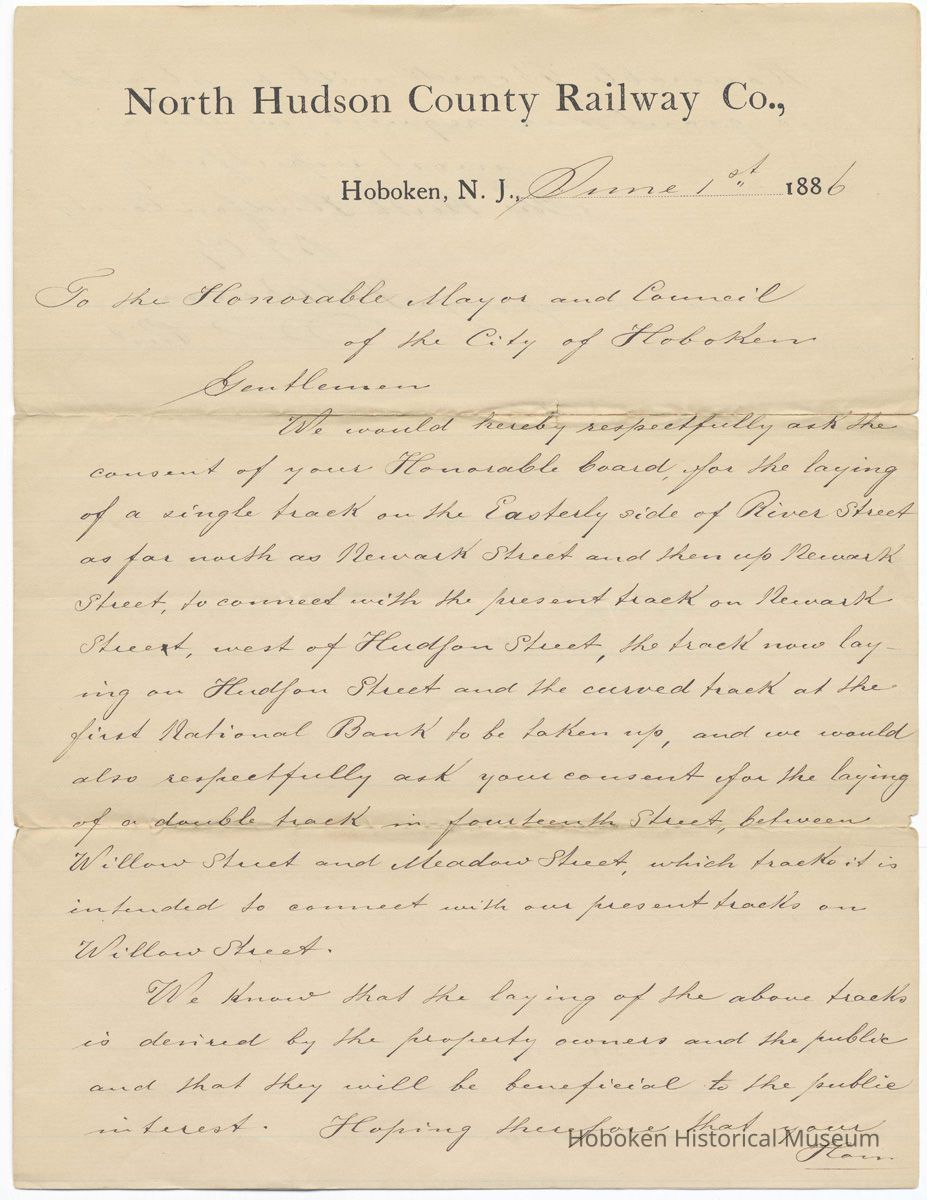 North Hudson County Railway Co.,
Hoboken, N. J., June 1st 1886
To the Honorable Mayor and Council
of the City of Hoboken
Gentlemen
We would hereby respectfully ask the
consent of your Honorable board, for the laying
of a single track on the Easterly side of River Street
as far north as Newark Street and then up Newark
Street, to connect with the present track on Newark
Street, west of Hudson Street, the track now lay-
ing on Hudson Street and the curved track at the
first National Bank to be taken up, and we would
also respectfully ask your consent for the laying
of a double track in fourteenth Street, between
Willow Street and Meadow Street, which tracks it is
intended to connect with our present tracks on
Willow Street.
We know that the laying of the above tracks
is desired by the property owners and the public
and that they will be beneficial to the public
interest. Hoping therefore that your
Hon.
Hoboken Historical Museum